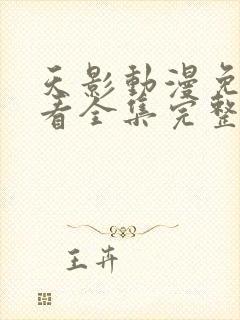 天影動漫免
看全集完整
王卉